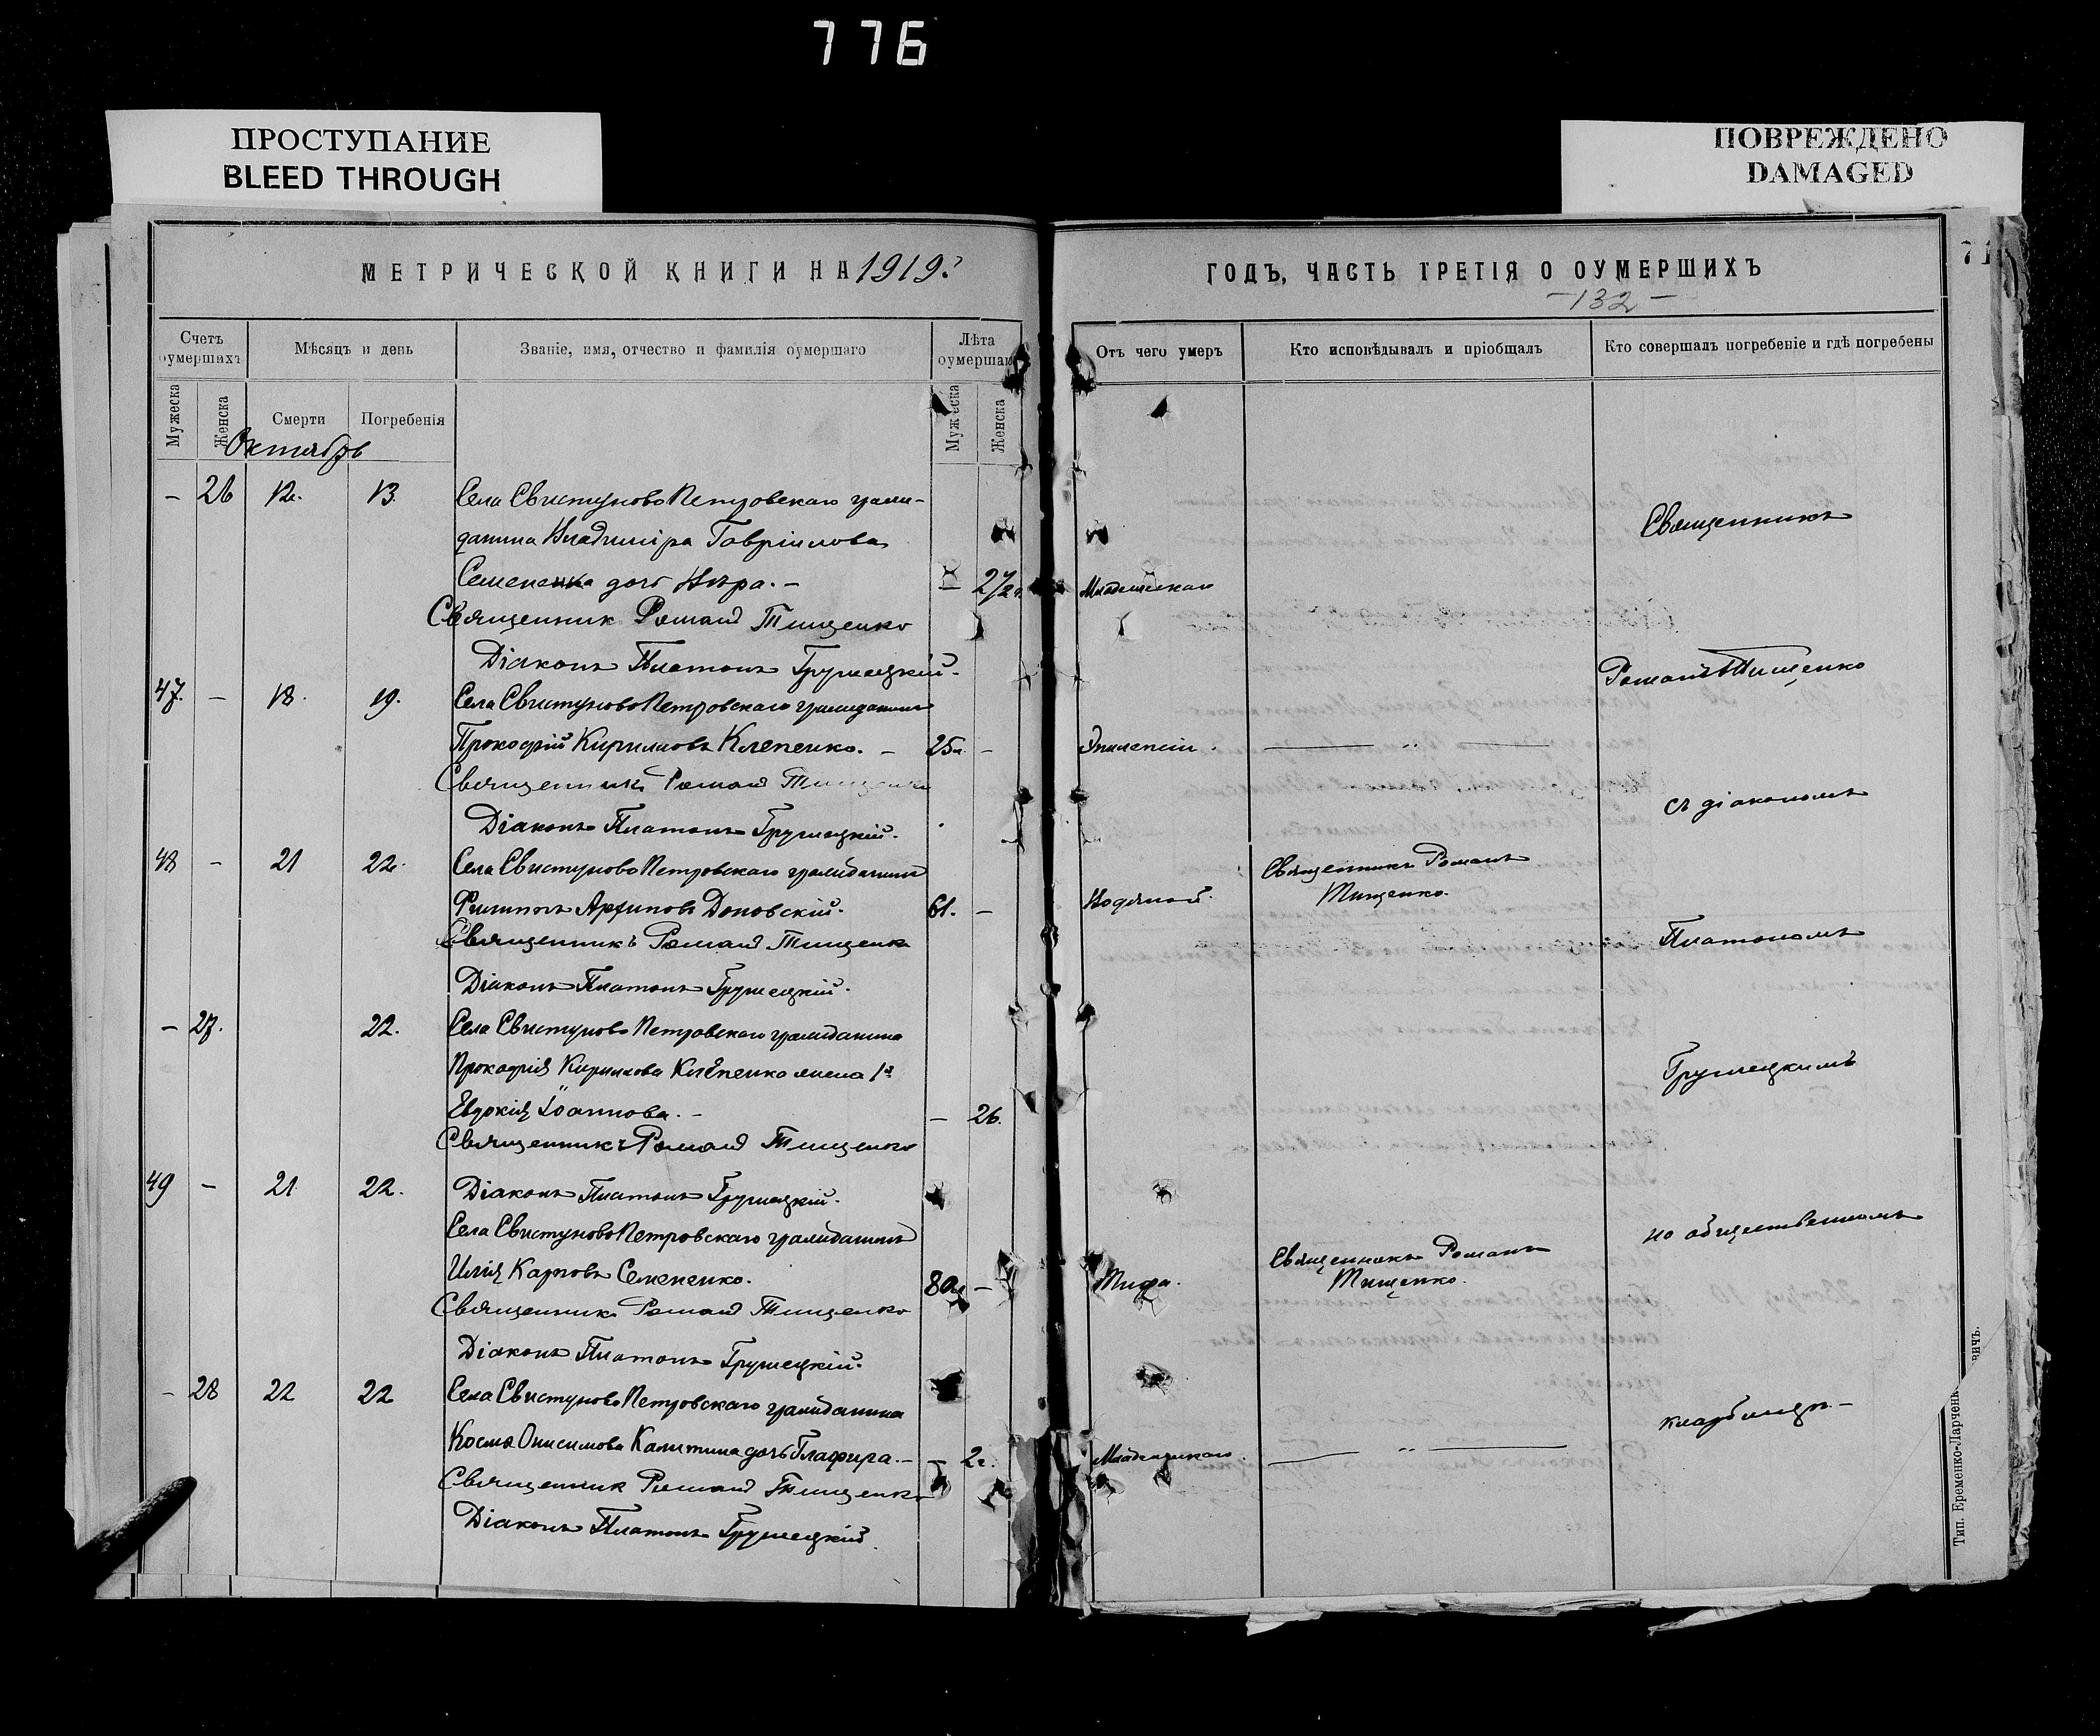 776
ПРОСТУПАНИЕ
BLEED THROUGH
ПОВРЕЖДЕНО
DAMAGED
МЕТРИЧЕСКОЙ КНИГИ НА 1919 г
Счетъ оумершихъ
Мѣсяцъ и день
Званіе, имя, отчество и фамилія оумершаго
Лѣта оумершаго
Мужеска
Женска
Смерти
Погребенія
Мужеска
Женска
Октябрь
- 26 12. 13. Села Свистуново Петровскаго граж-
данина Владиміра Гавріилова
Семененка дочь Вѣра. - - 2 1/2 г.
Священник Роман Тищенко
Діаконъ Платонъ Грушецкій.
47. - 18. 19. Села Свистуново Петровскаго гражданинъ
Прокофій Кирилловъ Клепенко. - 25 л. -
Священникъ Роман Тищенко
Діаконъ Платонъ Грушецкій.
48 - 21 22. Села Свистуново Петровскаго гражданинъ
Филиппъ Архиповъ Доновскій. 61. -
Священникъ Роман Тищенко
Діаконъ Платонъ Грушецкій.
- 27. 22. Села Свистуново Петровскаго гражданина
Прокофія Кириллова Клепенко жена
Евдокія Іоаннова. - - 26.
Священникъ Роман Тищенко
49 - 21 22. Діаконъ Платонъ Грушецкій.
Села Свистуново Петровскаго гражданинъ
Илія Карповъ Семененко. 80 л -
Священник Роман Тищенко
Діаконъ Платонъ Грушецкій.
- 28 22 22 Села Свистуново Петровскаго гражданина
Косма Онисимова Калитина дочь Глафира. - - 2 г.
Священник Роман Тищенко
Діаконъ Платонъ Грушецкій.
71
ГОДЪ, ЧАСТЬ ТРЕТІЯ О ОУМЕРШИХЪ
- 132 -
Отъ чего умеръ
Кто исповѣдывалъ и пріобщалъ
Кто совершалъ погребеніе и гдѣ погребены
Священникъ
Младенческая
Романъ Тищенко
Эпилепсіи.
съ діакономъ
Священникъ Романъ
Водяной. Тищенко.
Платономъ
Грушецкимъ
на общественномъ
Священникъ Романъ
Тифа. Тищенко.
кладбищѣ. -
Младенческаго
Тип. Еременко-Ларчень
вичъ.